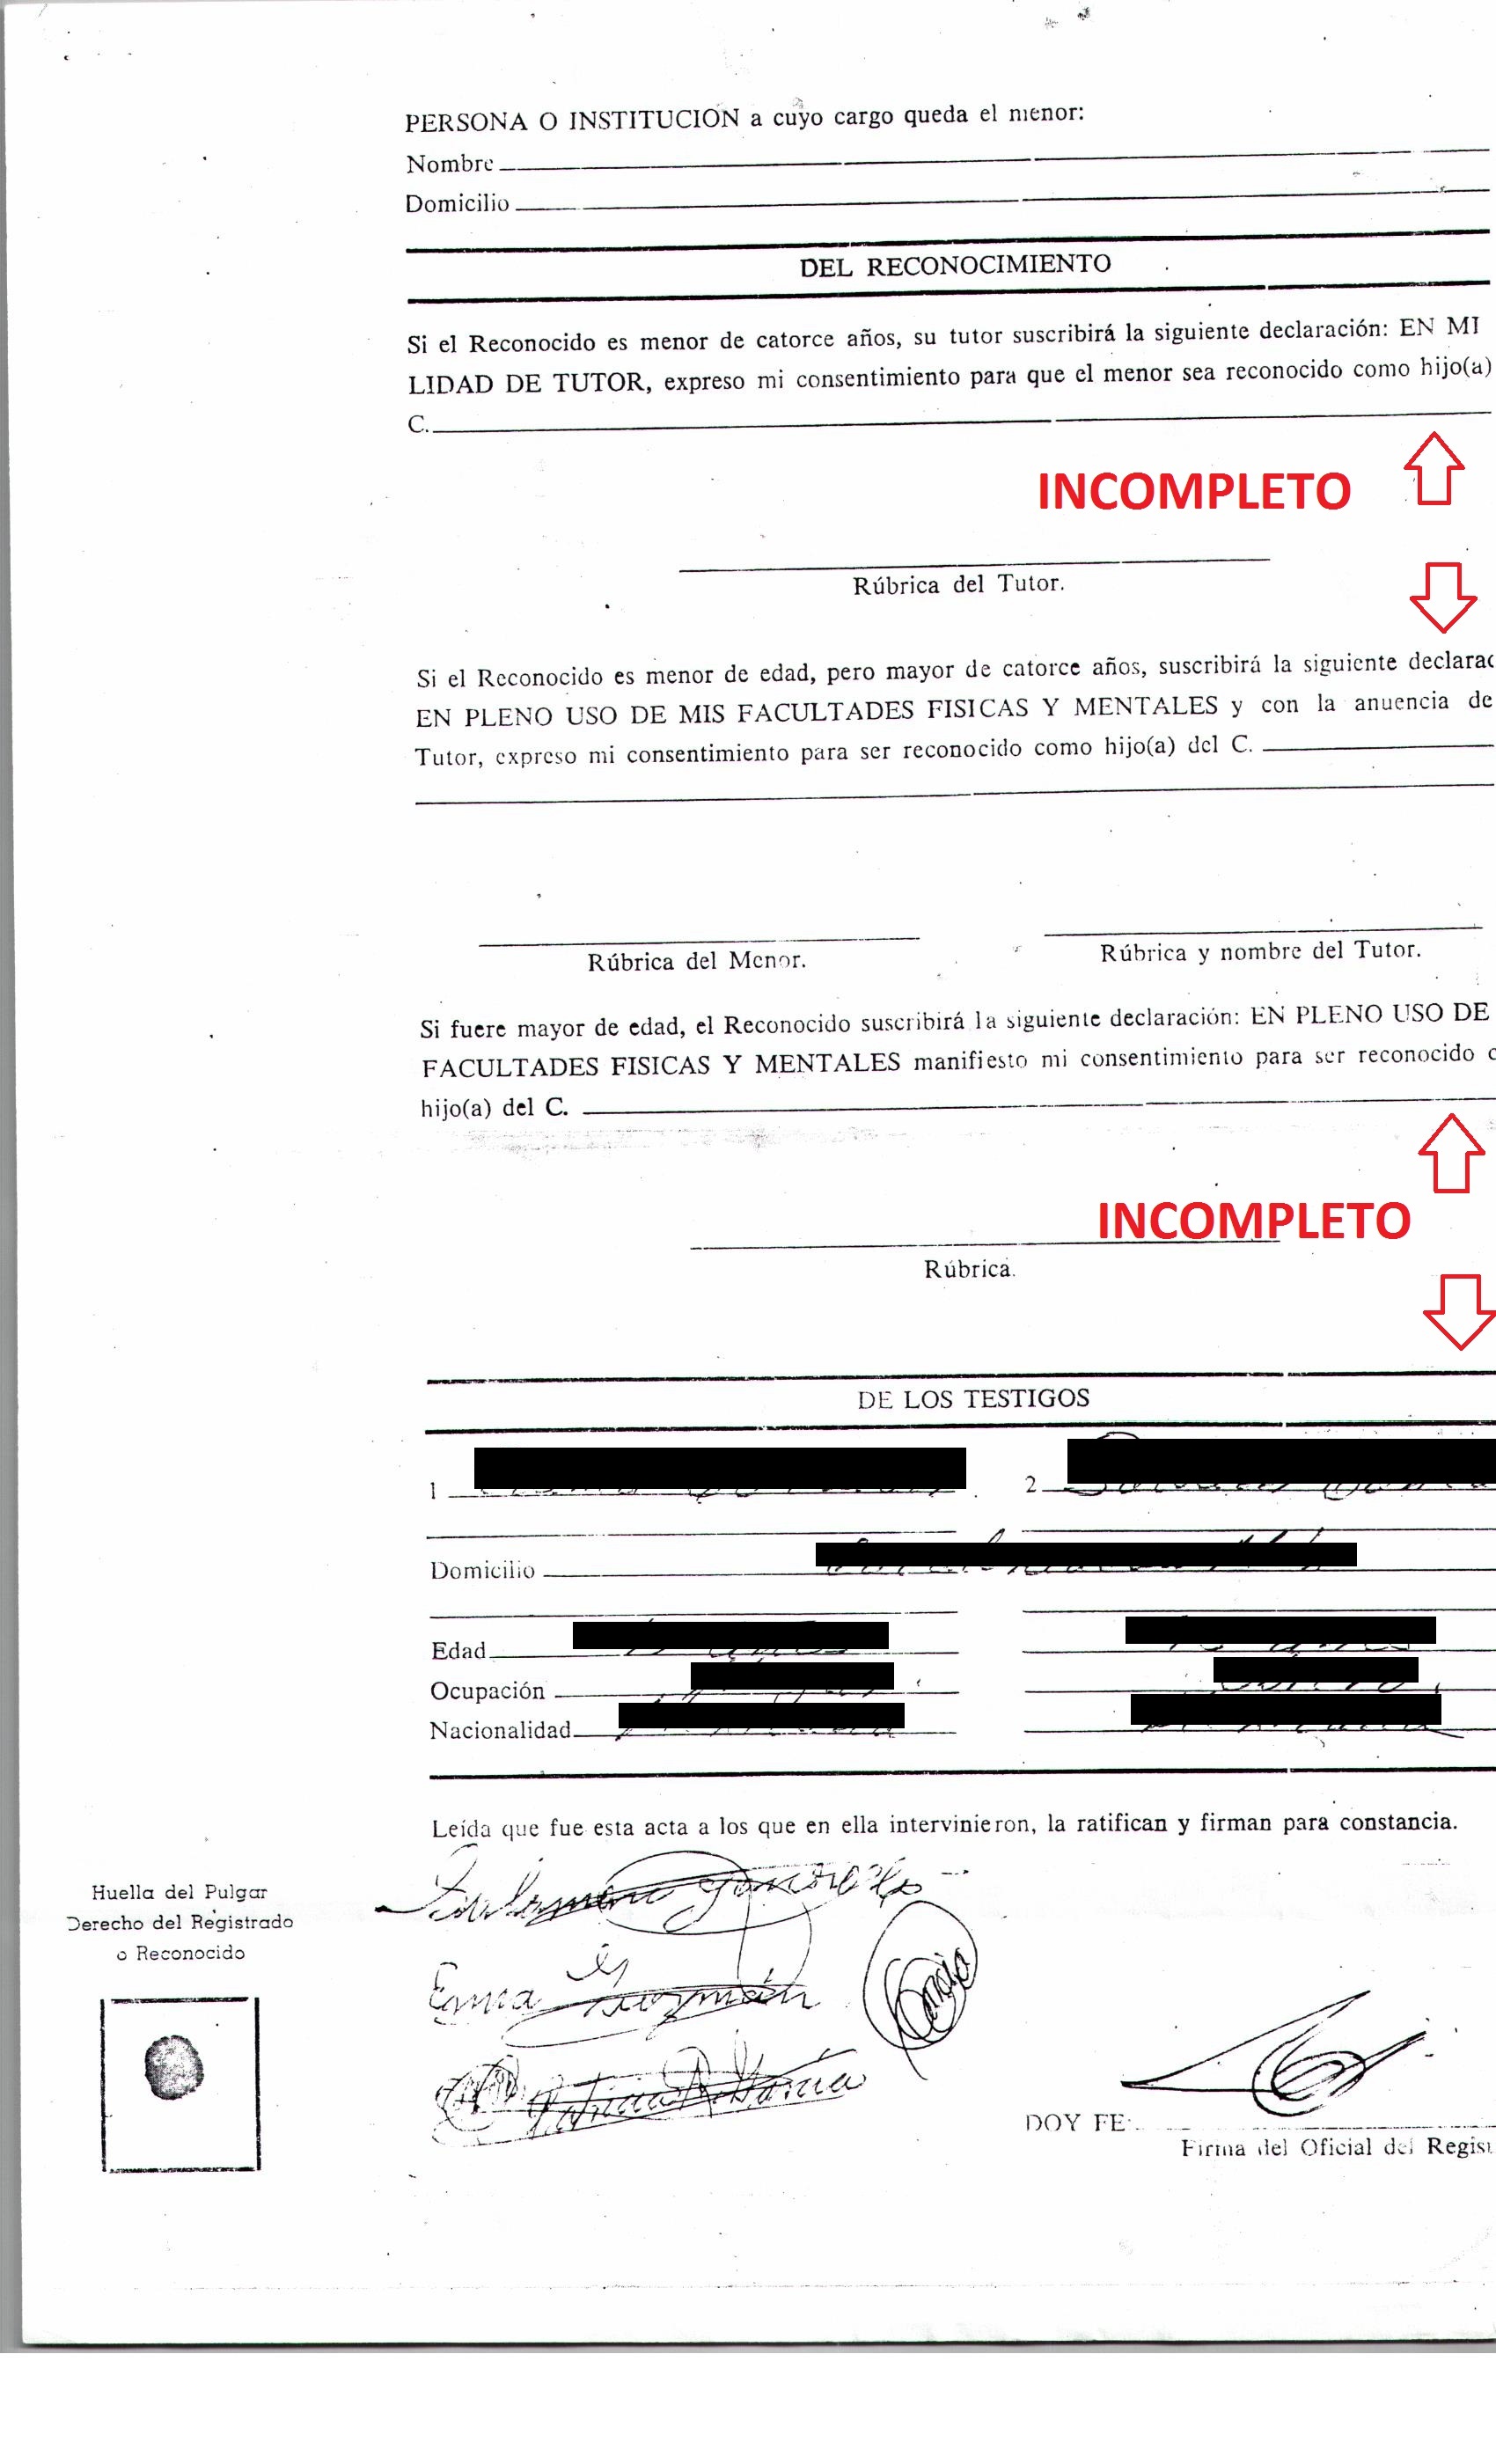 PERSONA O INSTITUCION a cuyo cargo queda el menor:
Nombre
Domicilio
DEL RECONOCIMIENTO
Si el Reconocido es menor de catorce años, su tutor suscribirá la siguiente declaración: EN MI
LIDAD DE TUTOR, expreso mi consentimiento para que el menor sea reconocido como hijo(a)
C.
INCOMPLETO
Rúbrica del Tutor.
Si el Reconocido es menor de edad, pero mayor de catorce años, suscribirá la siguiente declarac
EN PLENO USO DE MIS FACULTADES FISICAS Y MENTALES y con la anuencia de
Tutor, expreso mi consentimiento para ser reconocido como hijo(a) del C.
Rúbrica del Menor. Rúbrica y nombre del Tutor.
Si fuere mayor de edad, el Reconocido suscribirá la siguiente declaración: EN PLENO USO DE
FACULTADES FISICAS Y MENTALES manifiesto mi consentimiento para ser reconocido c
hijo(a) del C.
INCOMPLETO
Rúbrica.
DE LOS TESTIGOS
1 2
Domicilio
Edad
Ocupación
Nacionalidad
Leída que fue esta acta a los que en ella intervinieron, la ratifican y firman para constancia.
Huella del Pulgar
Derecho del Registrado
o Reconocido
Emma Guzmán
García
DOY FE:
Firma del Oficial del Regist